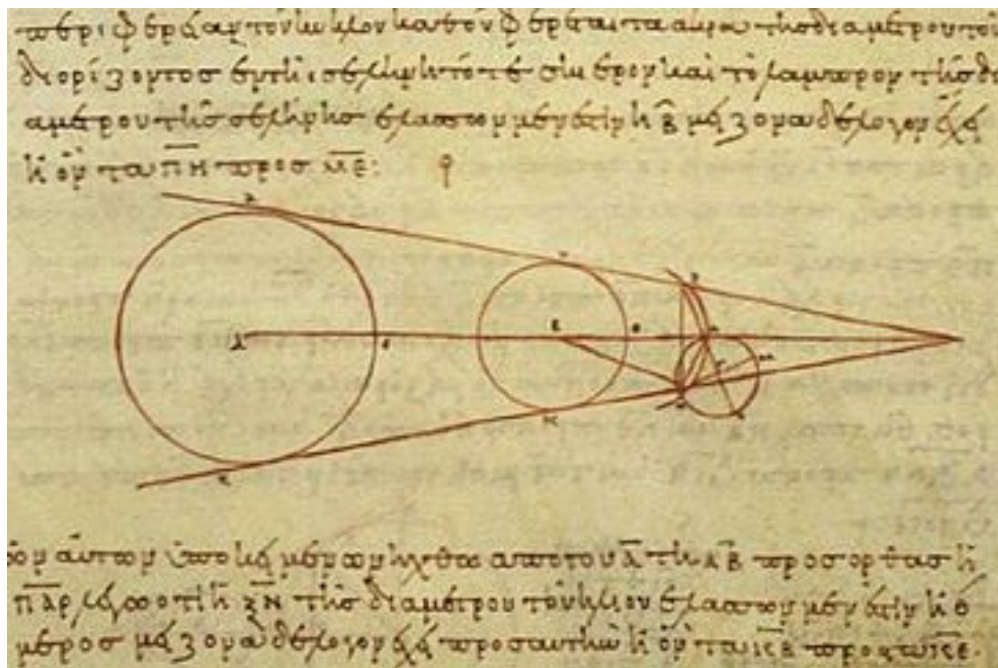 περιφέρειαν τοῦ κύκλου καθ' ὃν φέρεται τὰ ἄκρα τῆς διαμέτρου τοῦ
διορίζοντος ἐν τῆι σελήνηι τό τε σκιερὸν καὶ τὸ λαμπρὸν τῆς δι
αμέτρου τῆς σελήνης ἐλάσσων μέν ἐστιν ἢ β̅ μείζονα δὲ λόγον ἔχει
ἢ ὃν τὰ π̅η̅ πρὸς μ̅ε̅:
τῶν αὐτῶν ὑποκειμένων ἤχθω ἀπὸ τοῦ πρὸς ὀρθὰς ἡ
π̅λ̅ρ̅ λέγω ὅτι ἡ ξ̅ν̅ τῆς διαμέτρου τοῦ ἡλίου ἐλάσσων μέν ἐστιν ἢ θ
μέρος μείζονα δὲ λόγον ἔχει πρὸς αὐτὴν ἢ ὃν τὰ κ̅β̅ πρὸς